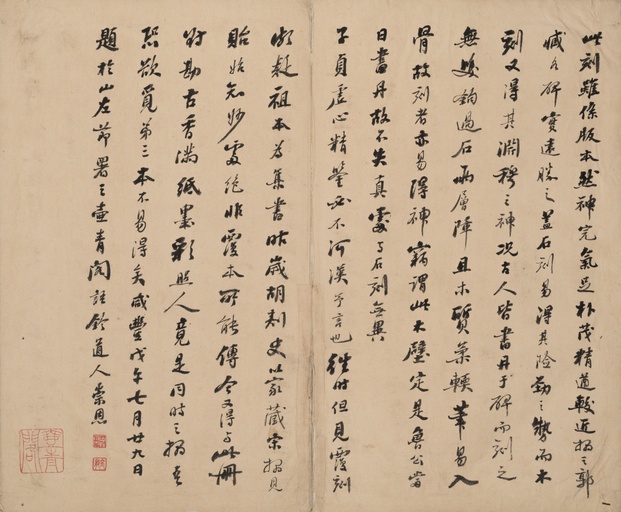 此刻雖係版本然神完氣足朴茂精遒較近搨之郭
臧各碑實遠勝之蓋石刻易得其險勁之勢而木
刻又得其淵穆之神況古人皆書丹于碑而刻之
無雙鉤過石兩層障且木質柔輭筆易入
骨故刻者亦易得神竊謂此木壁定是魯公當
日書丹故不失真處與石刻無異
子貞虛心精鑒必不河漢予言也往時但見覆刻
本疑祖本為集書昨歲胡刺史以家藏宋搨見
貽始知妙處絕非覆本所能傳今又得與此冊
對勘古香滿紙墨彩照人竟是同時之搨吾
恐欲覓第三本不易得矣咸豐戊午七月廿九日
題於山左節署之壺青閣 鈴道人崇恩